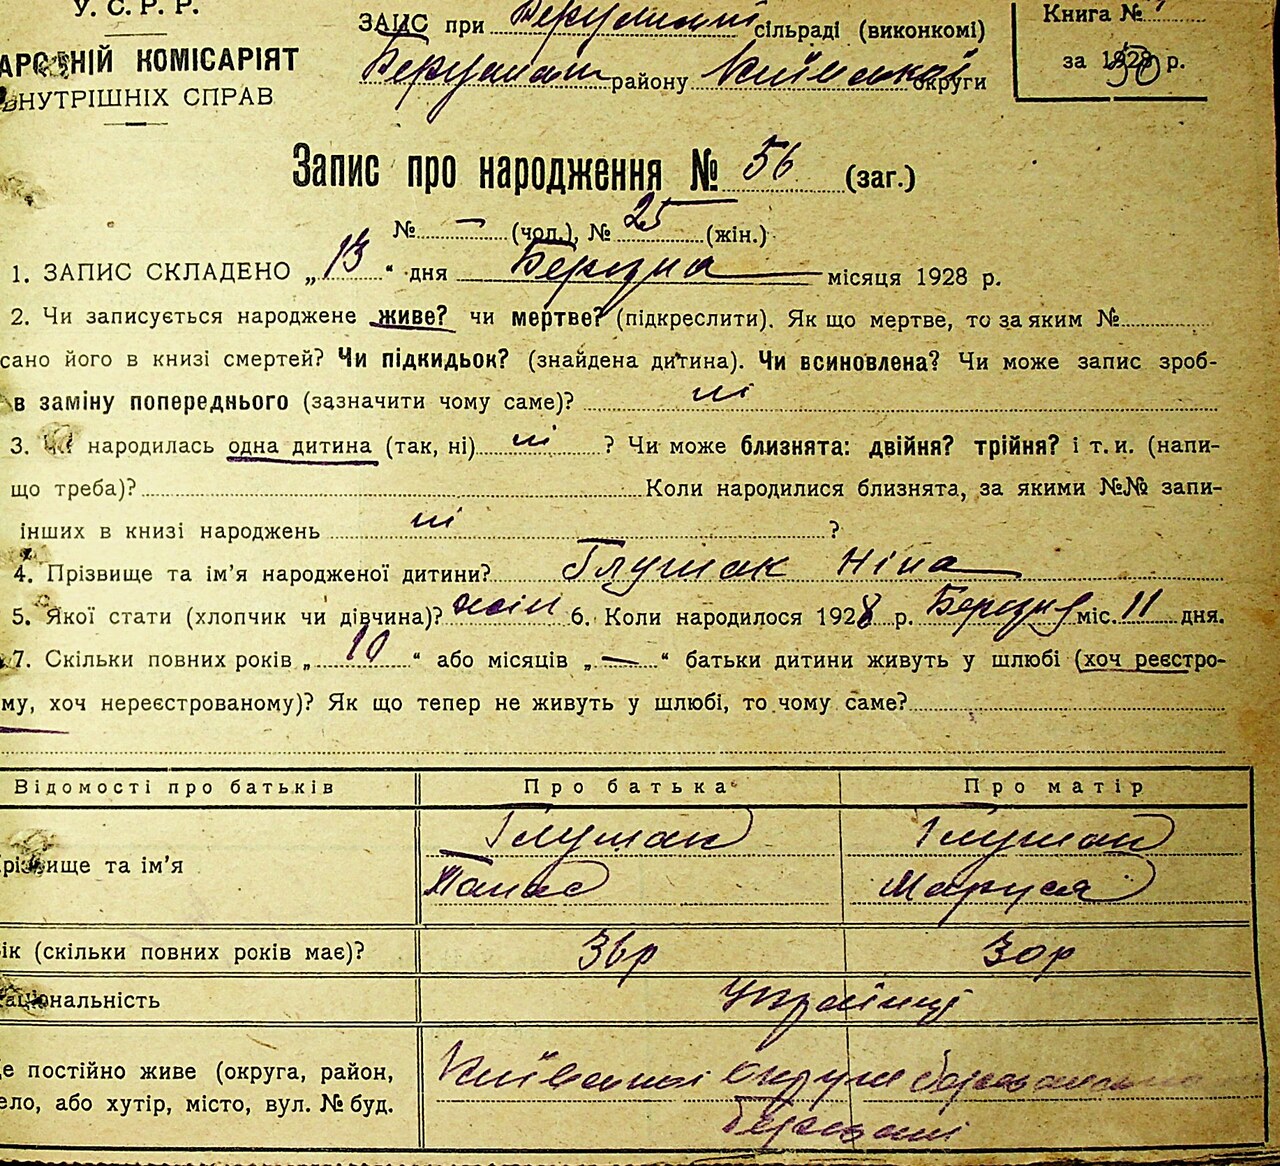 У. С. Р. Р.
НАРОДНІЙ КОМІСАРІЯТ
ВНУТРІШНІХ СПРАВ
ЗАГС при сільраді (виконкомі)
району Київської округи
Книга №
за 1928 р.
Запис про народження № 56 (заг.)
№ — (чол.), № 25 (жін.)
1. ЗАПИС СКЛАДЕНО „13“ дня Березня місяця 1928 р.
2. Чи записується народжене живе? чи мертве? (підкреслити). Як що мертве, то за яким №
сано його в книзі смертей? Чи підкидьок? (знайдена дитина). Чи всиновлена? Чи може запис зроб-
в заміну попереднього (зазначити чому саме)? ні
3. Чи народилась одна дитина (так, ні) ні ? Чи може близнята: двійня? трійня? і т. и. (напи-
що треба)? Коли народилися близнята, за якими №№ запи-
інших в книзі народжень ні ?
4. Прізвище та ім’я народженої дитини? Глушак Ніна
5. Якої стати (хлопчик чи дівчина)? жін 6. Коли народилося 1928 р. Березня міс. 11 дня.
7. Скільки повних років „10“ або місяців „—“ батьки дитини живуть у шлюбі (хоч реєстро-
му, хоч нереєстрованому)? Як що тепер не живуть у шлюбі, то чому саме?
Відомості про батьків Про батька Про матір
Глушак Глушак
Прізвище та ім’я
Панас Маруся
Вік (скільки повних років має)? 36р 30р
Національність Українці
Де постійно живе (округа, район, Київської округи
село, або хутір, місто, вул. № буд.